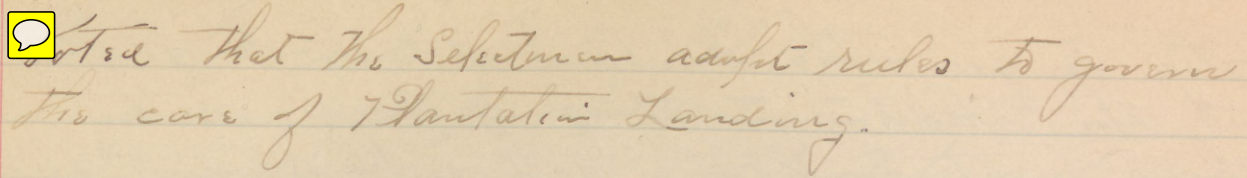 Voted that the Selectmen adopt rules to govern
the care of Plantation Landing.